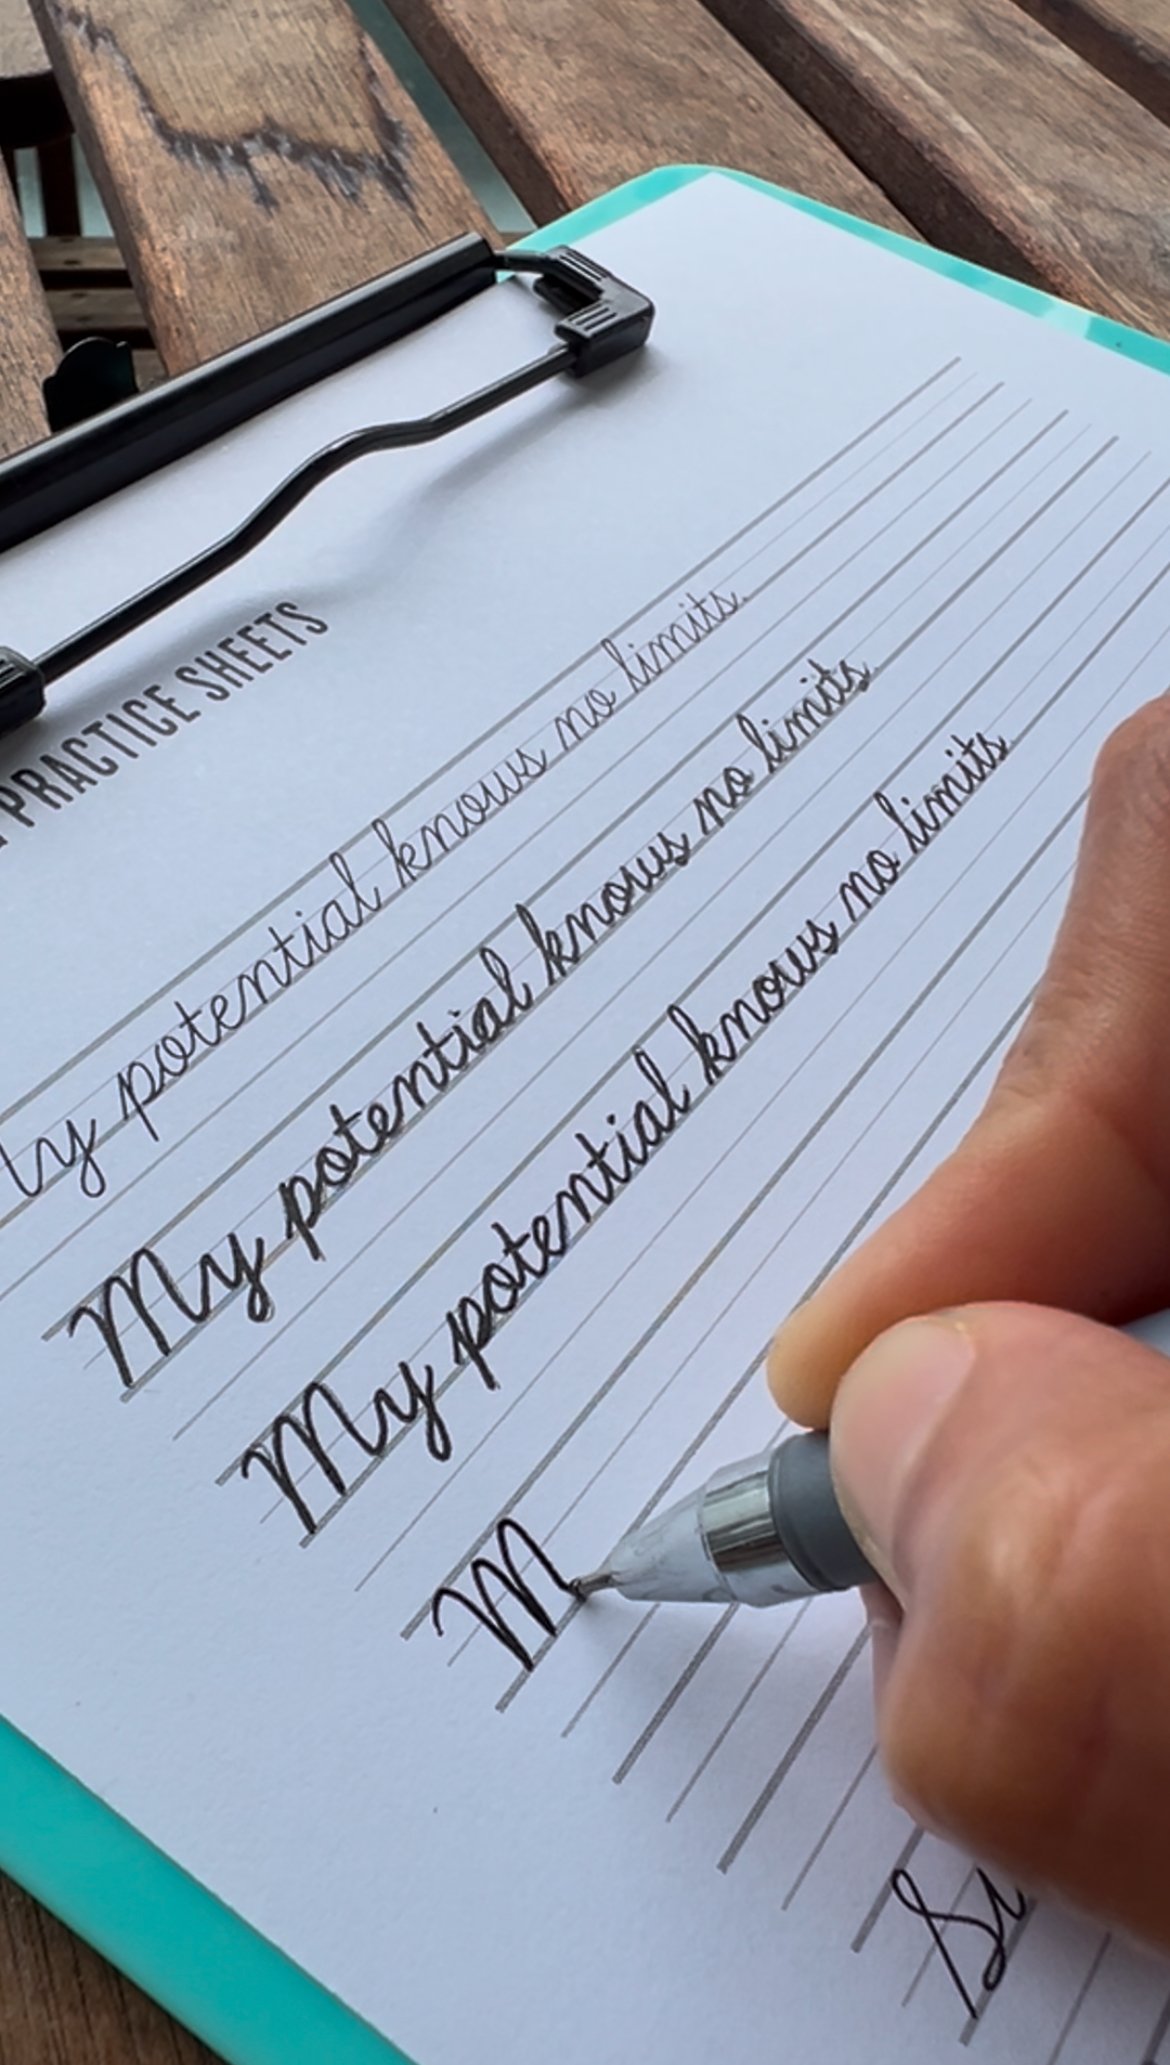 PRACTICE SHEETS
My potential knows no limits.
My potential knows no limits.
My potential knows no limits.
M
Su